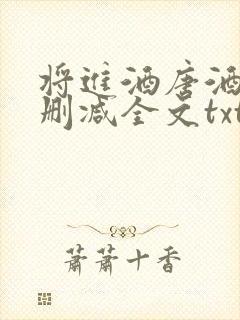 将进酒唐酒
删减全文txt
萧萧十香